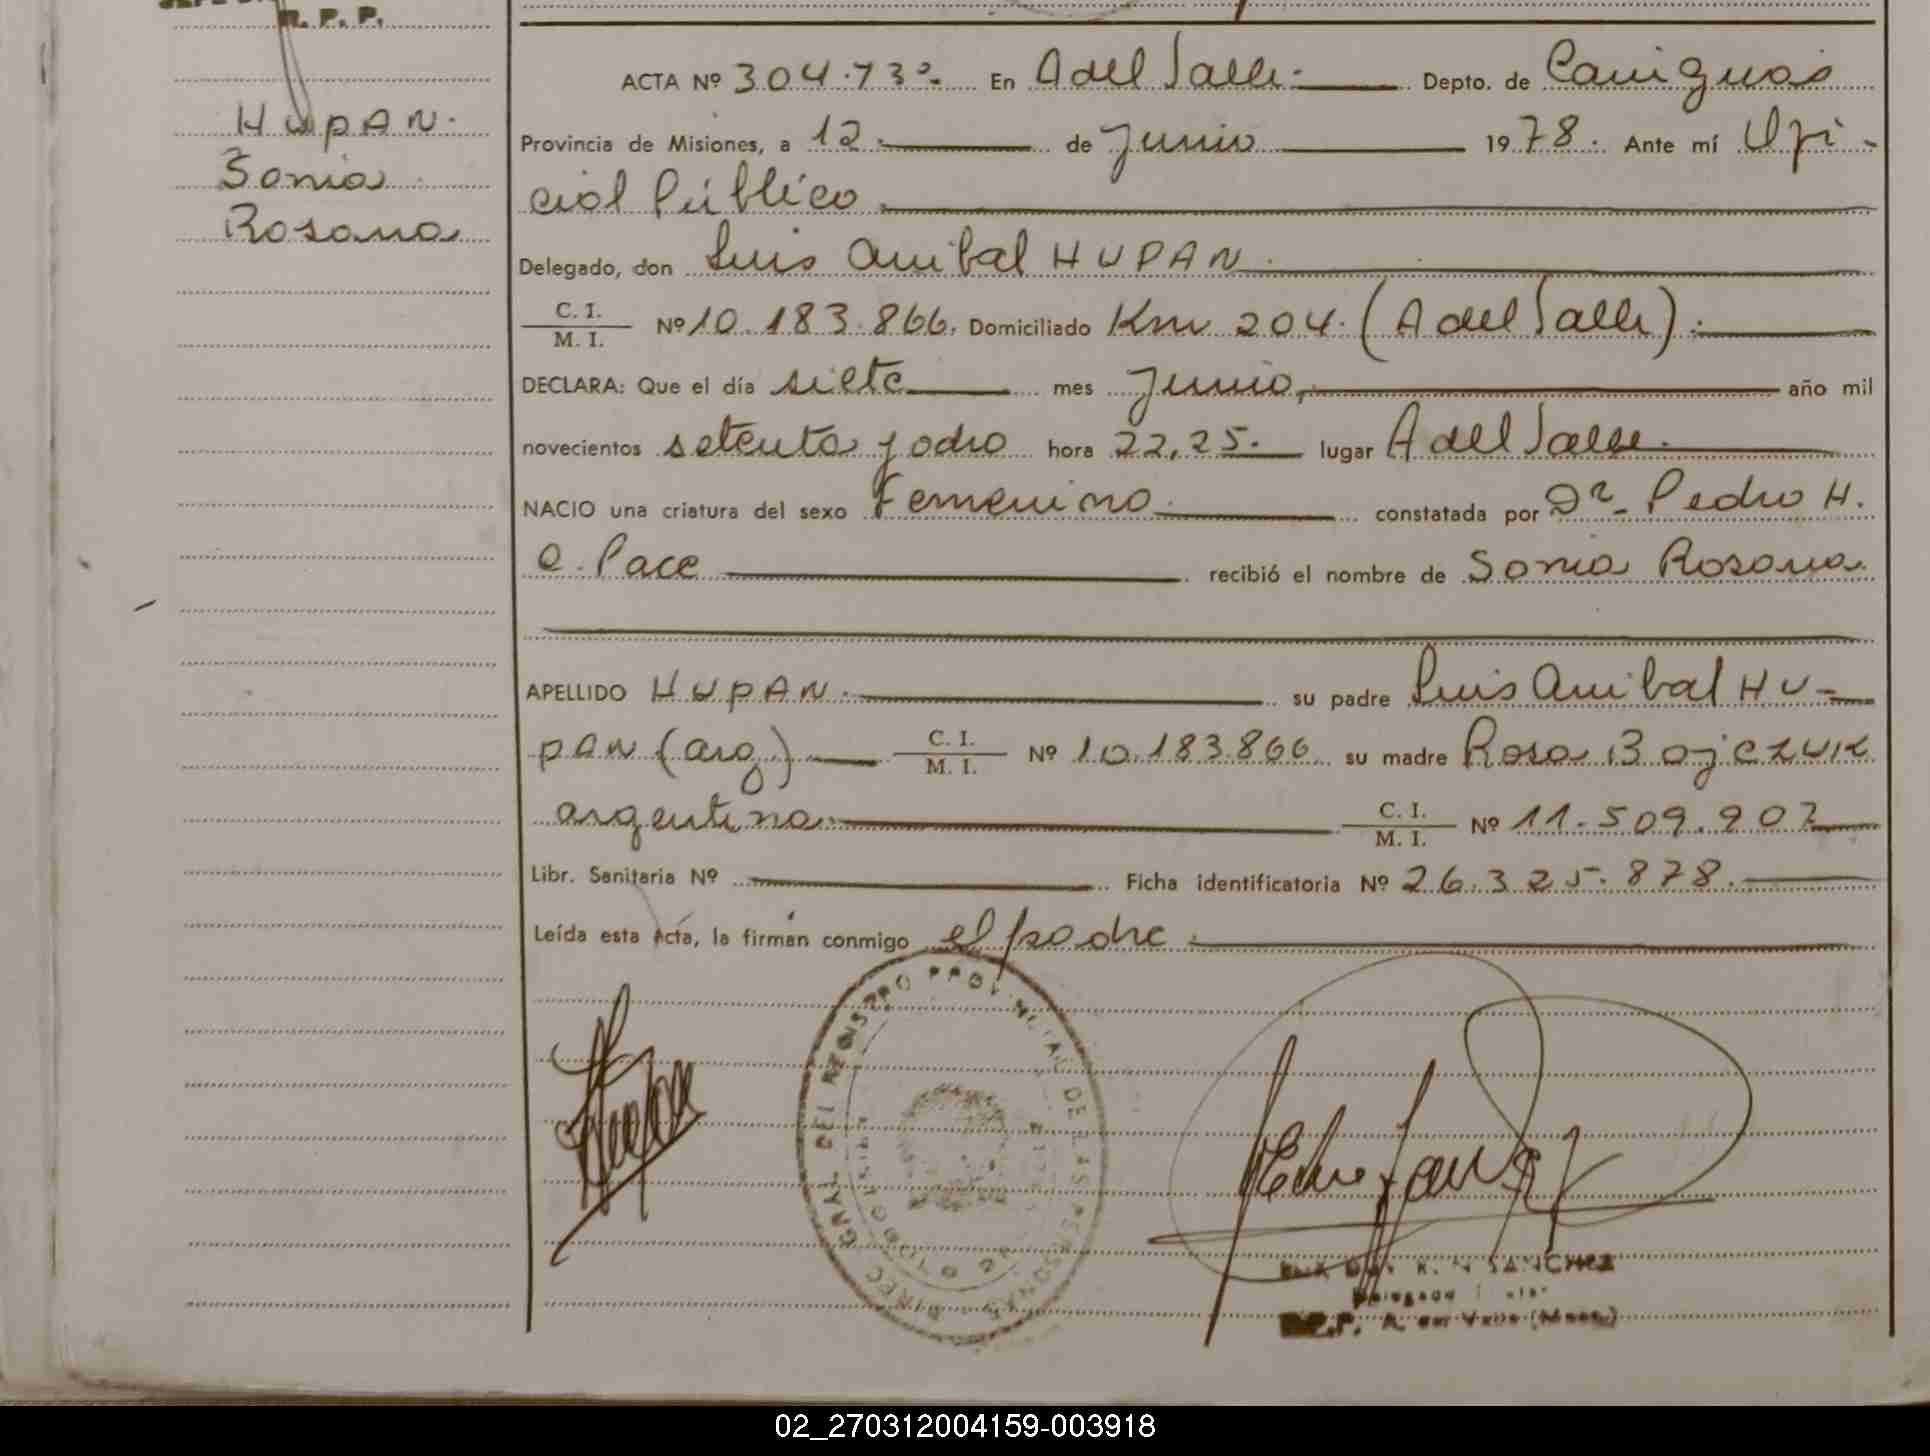 R. P. P.
HUPAN.
Sonia
Rosana
ACTA Nº 304.73º- En A del Valle. Depto. de Cainguás
Provincia de Misiones, a 12 de Junio 1978. Ante mí Ofi-
cial Público
Delegado, don Luis Anibal HUPAN.
C. I.
M. I. Nº 10.183.866. Domiciliado Km 204. (A del Valle).
DECLARA: Que el día siete mes Junio, año mil
novecientos setenta y ocho hora 22,25. lugar A del Valle.
NACIO una criatura del sexo Femenino. constatada por Dr. Pedro H.
C. Pace recibió el nombre de Sonia Rosana.
APELLIDO HUPAN. su padre Luis Anibal HU-
PAN (arg.) C. I.
M. I. Nº 10.183.866 su madre Rosa Bojczuk
argentina C. I.
M. I. Nº 11.509.907
Libr. Sanitaria Nº Ficha identificatoria Nº 26.325.878.
Leída esta Acta, la firman conmigo el padre.
DIREC. GRAL. DEL REGISTRO PROVINCIAL DE LAS PERSONAS
SANCHEZ
Delegado
R.P.P. A. del Valle (Mnes.)
02_270312004159-003918